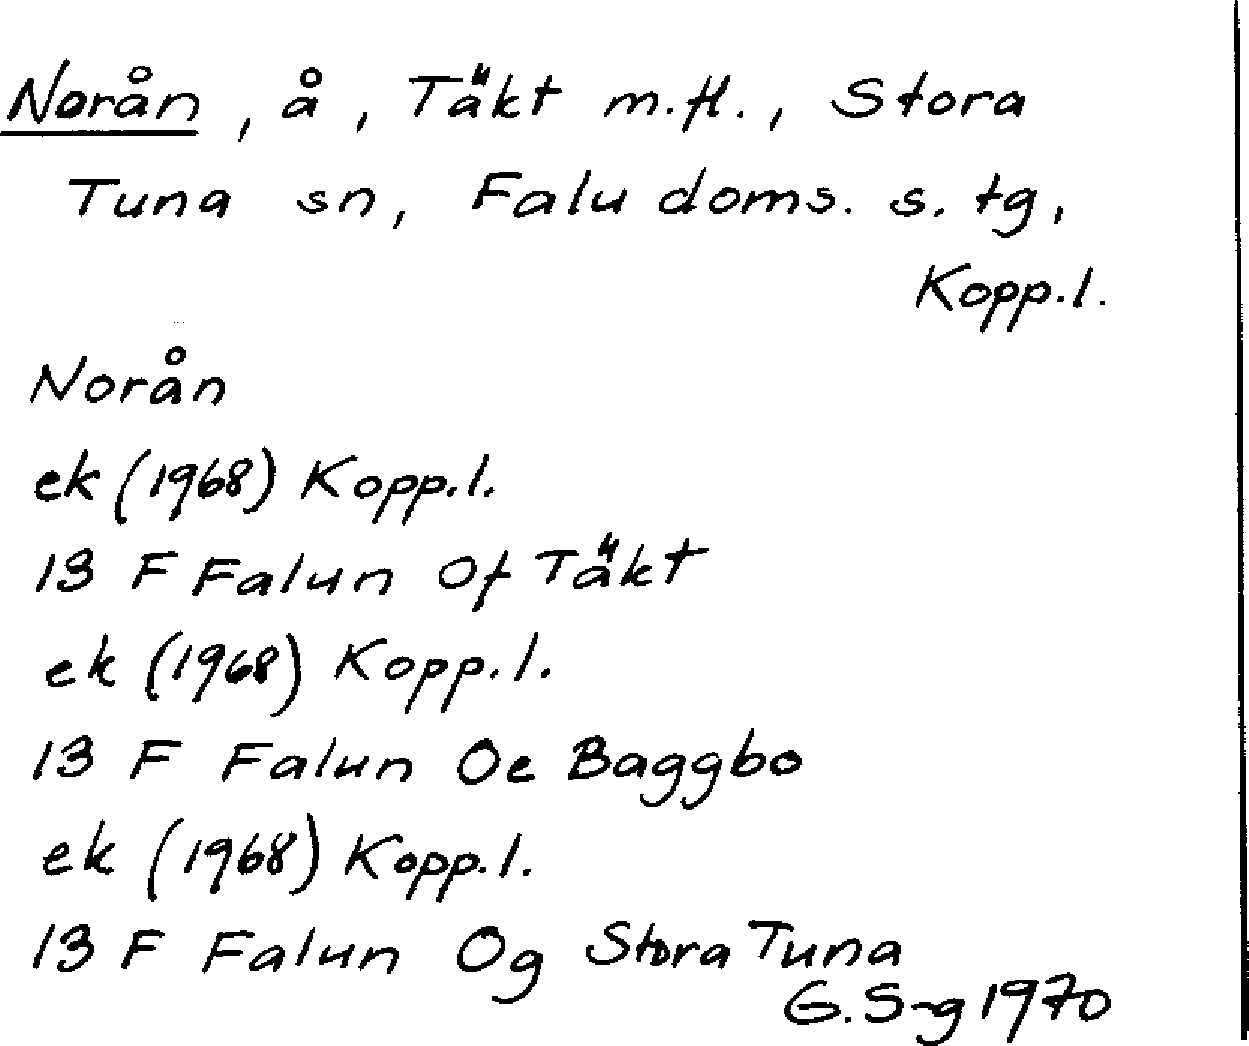 Norån, å, Täkt m.fl., Stora
Tuna sn, Falu doms. s. tg,
Kopp.l.
Norån
ek (1968) Kopp.l.
13 F Falun Of Täkt
ek (1968) Kopp.l.
13 F Falun Oe Baggbo
ek (1968) Kopp.l.
13 F Falun Og Stora Tuna
G. S-g 1970